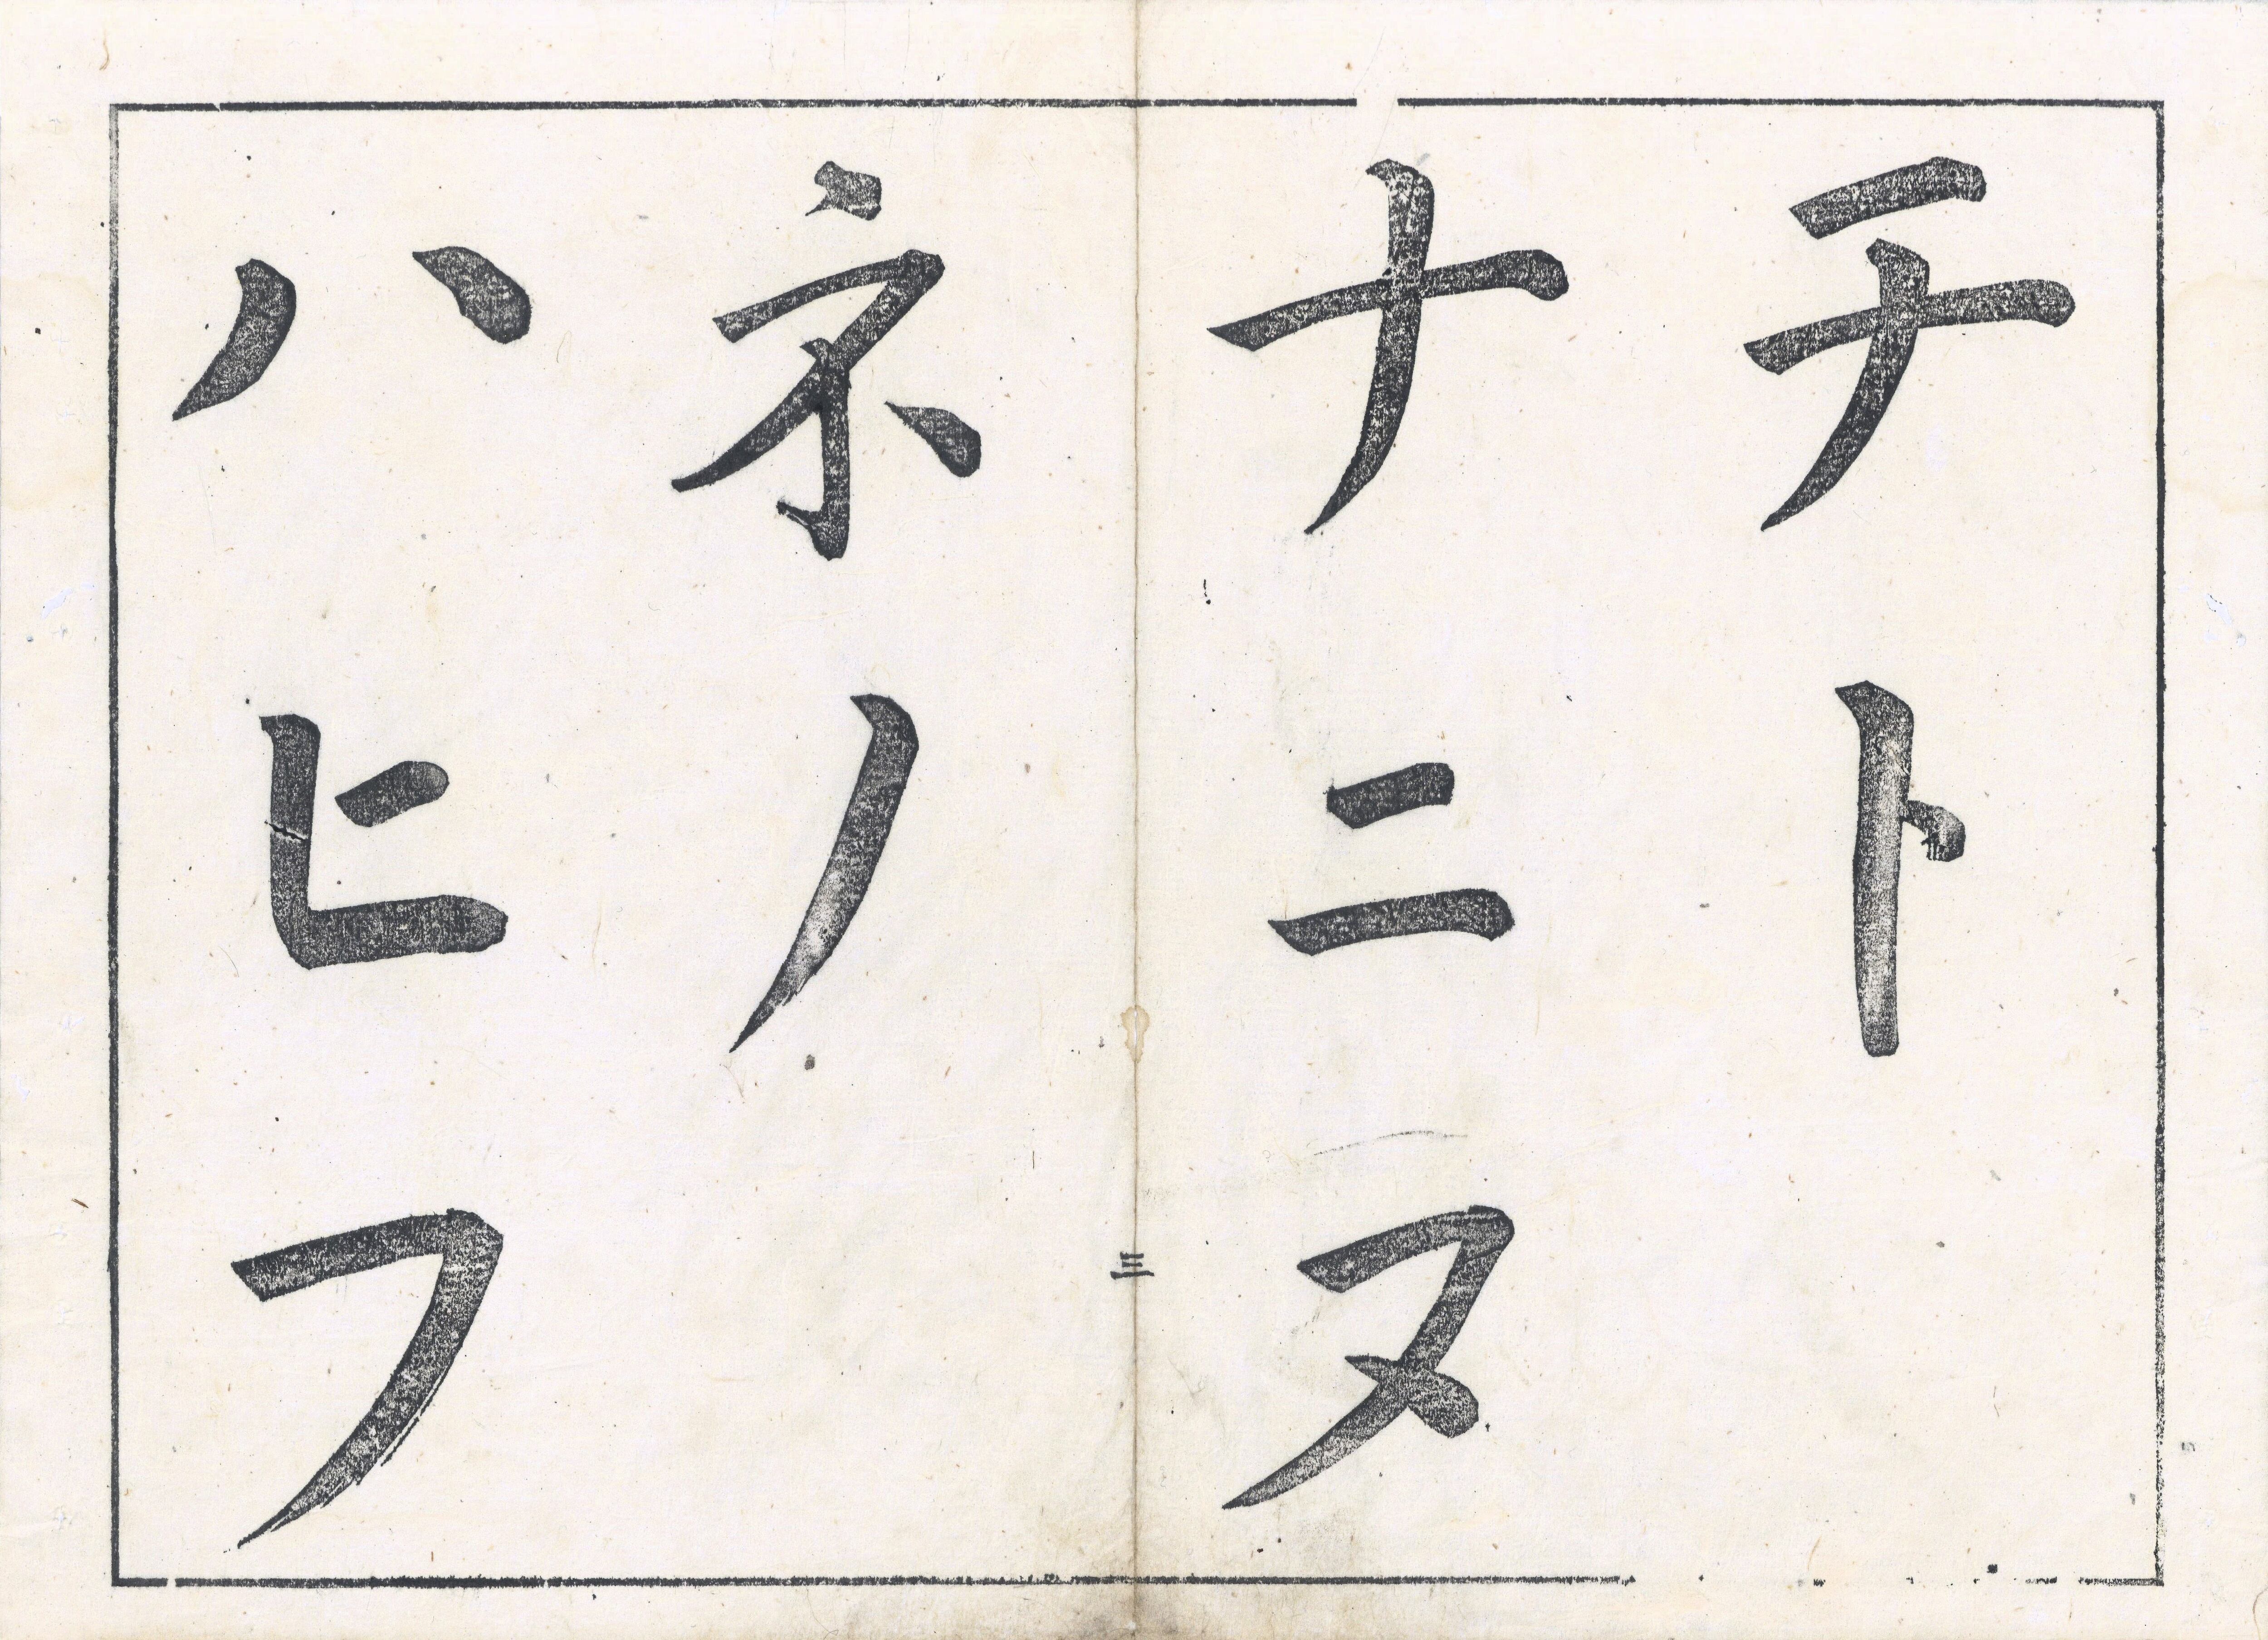 テト
ナニヌ
三
ネノ
ハヒフ